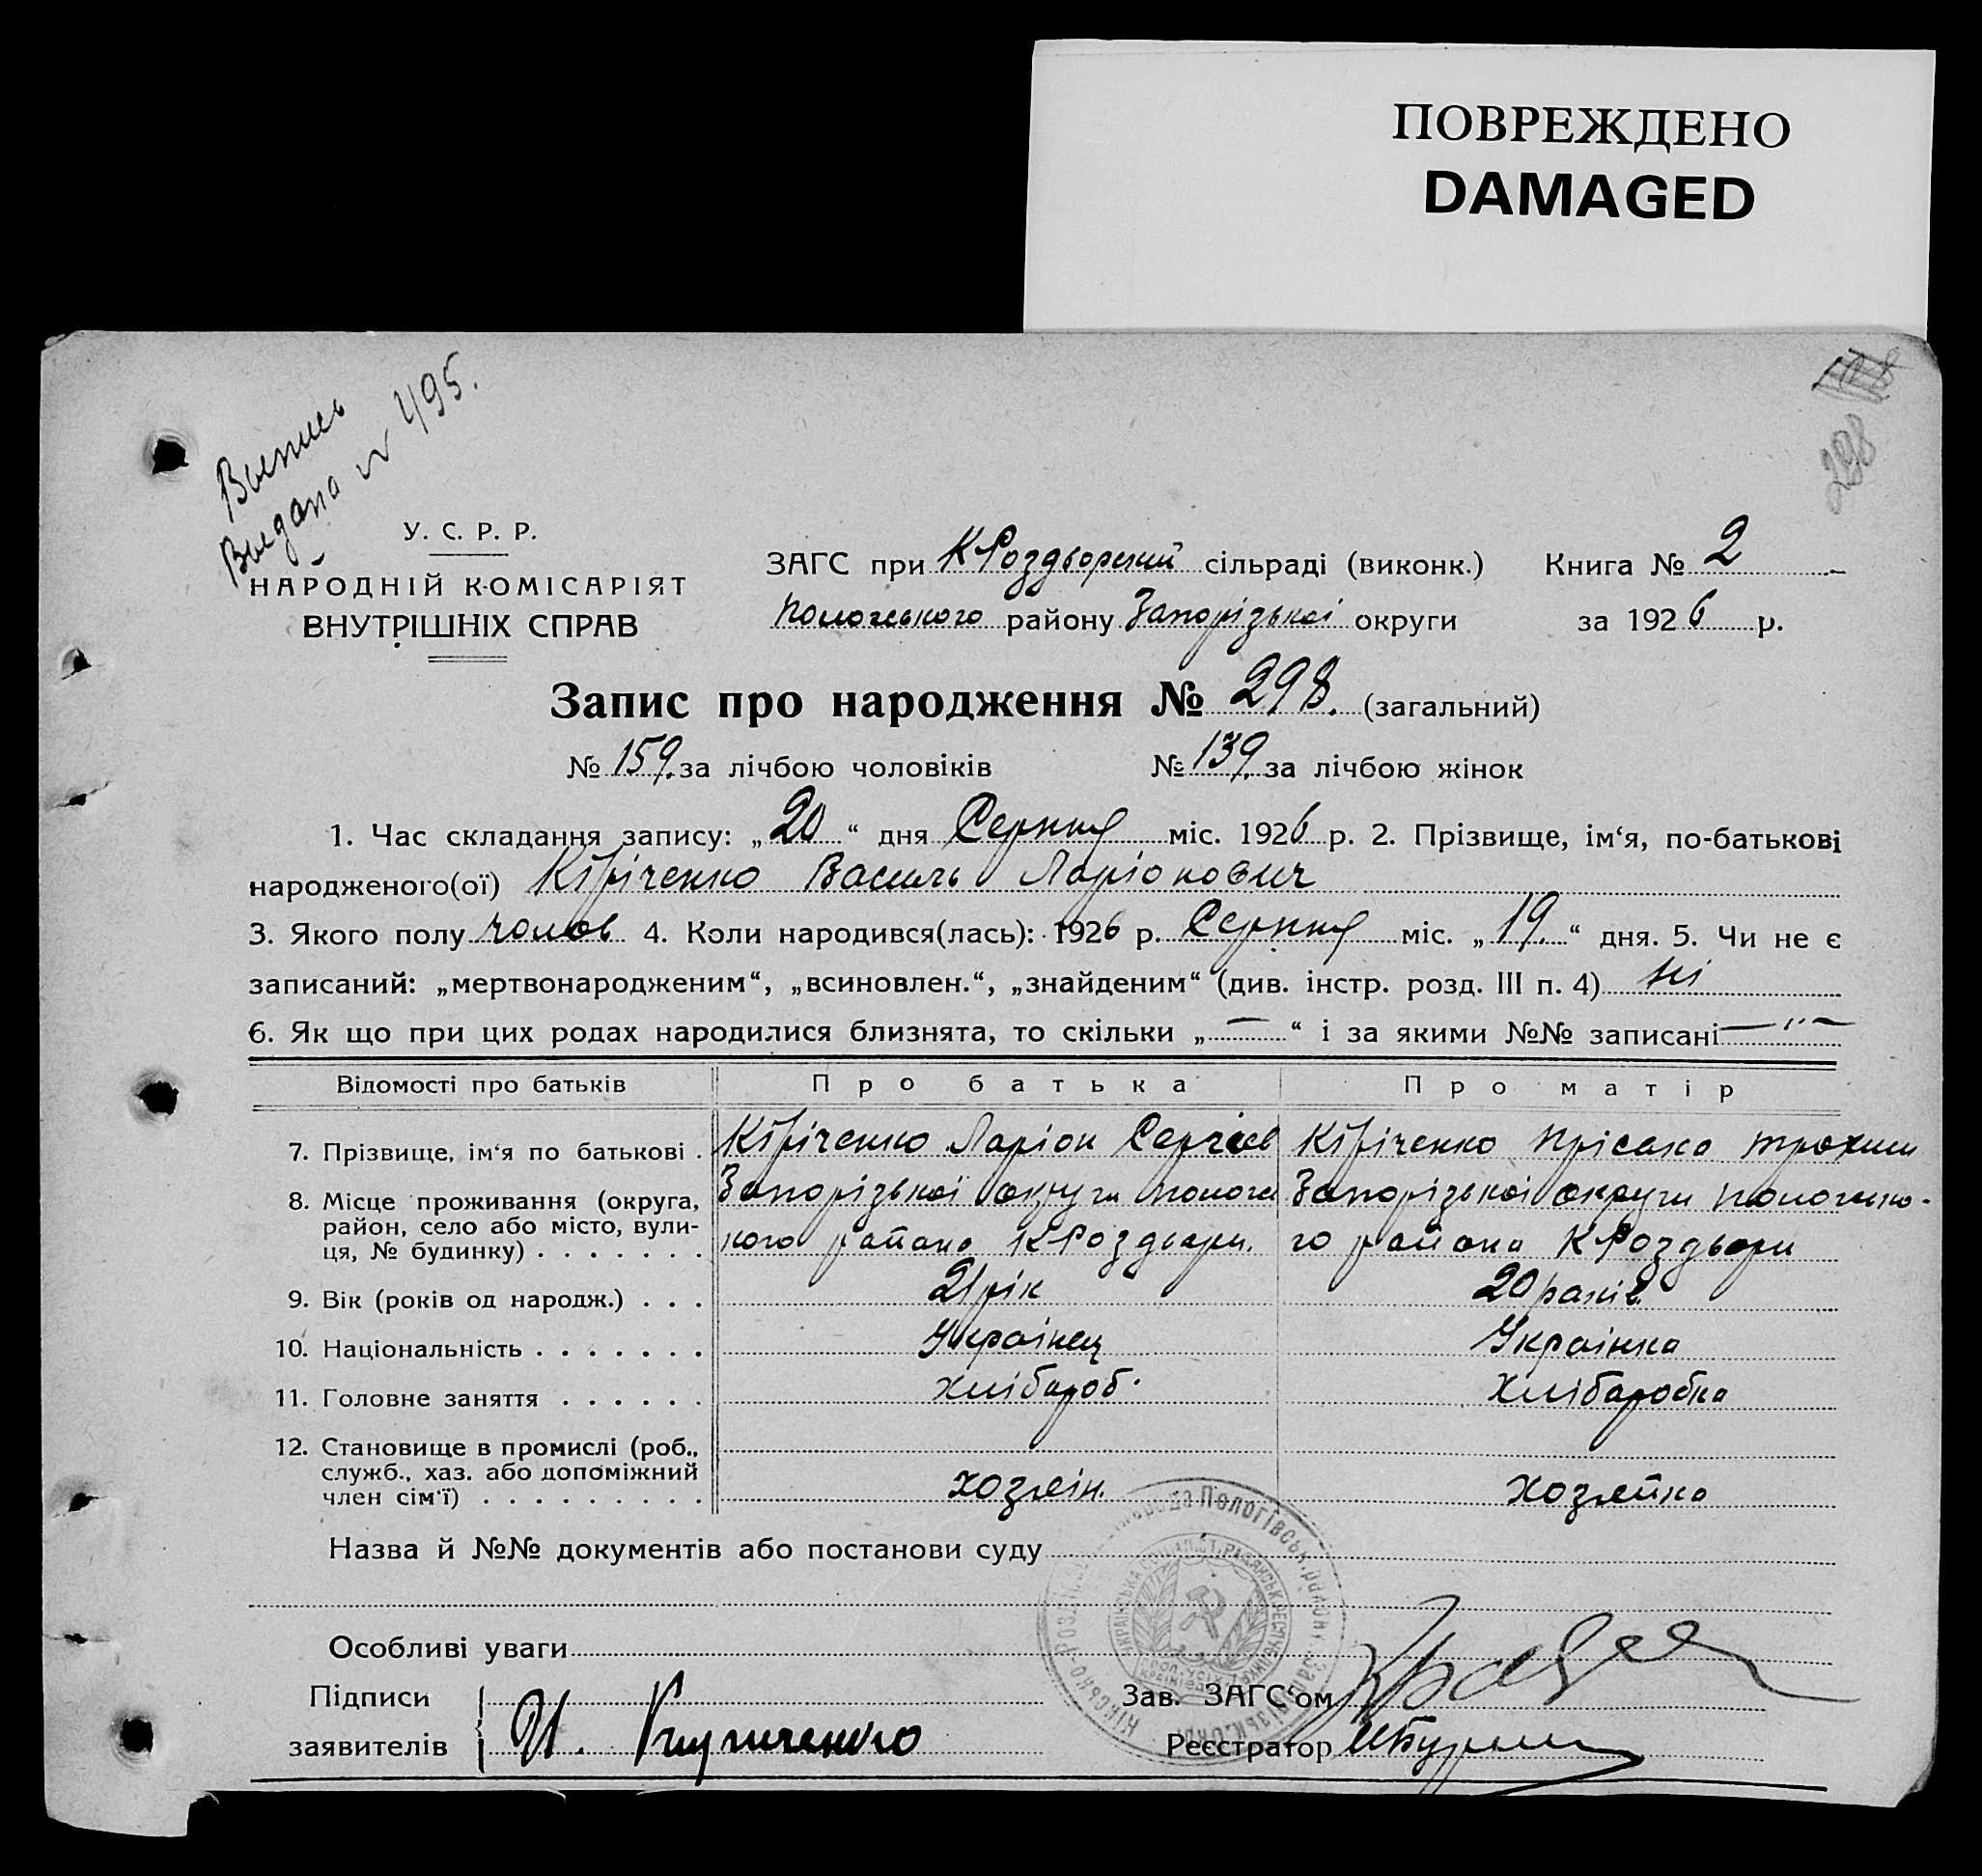 ПОВРЕЖДЕНО
DAMAGED
Выпись
Выдана N 495.
298
У. С. Р. Р.
НАРОДНІЙ КОМІСАРІЯТ
ВНУТРІШНІХ СПРАВ
ЗАГС при КРоздорский сільраді (виконк.) Книга № 2
Пологського району Запорізької округи за 1926 р.
Запис про народження № 298. (загальний)
№ 159. за лічбою чоловіків № 139. за лічбою жінок
1. Час складання запису: „20“ дня Серпня міс. 1926 р. 2. Прізвище, ім‘я, по-батькові
народженого(ої) Кіріченко Василь Ларіонович
3. Якого полу чолов 4. Коли народився(лась): 1926 р. Серпня міс. „19.“ дня. 5. Чи не є
записаний: „мертвонародженим“, „всиновлен.“, „знайденим“ (див. інстр. розд. III п. 4) ні
6. Як що при цих родах народилися близнята, то скільки „—“ і за якими №№ записані —"—
Відомості про батьків Про батька Про матір
7. Прізвище, ім‘я по батькові . Кіріченко Ларіон Сергіев Кіріченко Пріська Трохим
8. Місце проживання (округа, район, село або місто, вулиця, № будинку) . . . . . . . Запорізької округи Пологс Запорізької округи Пологсько-
кого района КРоздори. го района КРоздори
9. Вік (років од народж.) . . . 21 рік 20 років
10. Національність . . . . . . . Украінец Украінка
11. Головне заняття . . . . . . хлібароб. Хлібаробка
12. Становище в промислі (роб., служб., хаз. або допоміжний член сім‘ї) . . . . . . . . . хозяін. хозяйка
Назва й №№ документів або постанови суду
Особливі уваги
Підписи
заявителів И. Кириченко
Зав. ЗАГС‘ом
Реєстратор